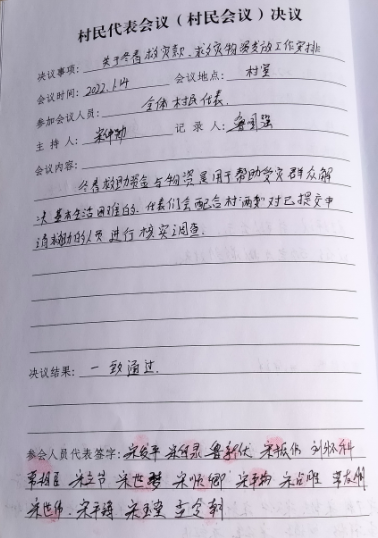 村民代表会议（村民会议）决议
决议事项：关于冬春救灾款、救灾物资发放工作安排
会议时间：2022.1.14 会议地点：村室
参加会议人员：全体村民代表.
主持人： 记录人：
会议内容：
冬春救助资金与物资是用于帮助受灾群众解
决基本生活困难的. 代表们会配合村"两委"对已提交申
请救助的人员进行核实调查.
决议结果：一致通过.
参会人员代表签字：宋 鲁新伏 宋振伟 刘怀科
宋立节 宋世梦 宋顺卿 宋
宋世伟. 宋平 宋玉堂